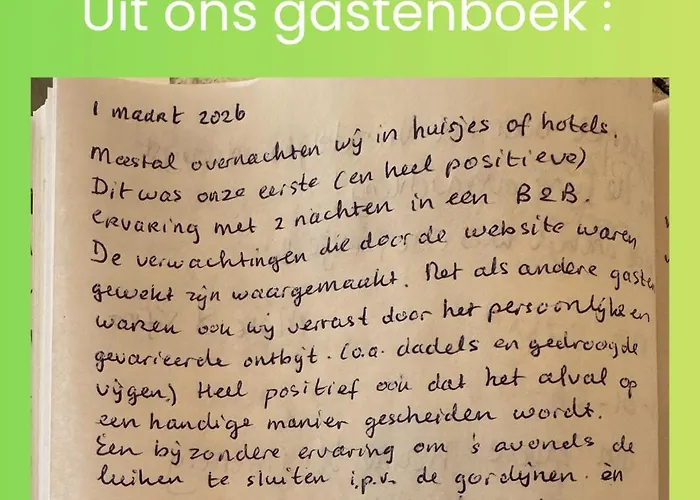 Uit ons gastenboek :
1 maart 2026
Meestal overnachten wij in huisjes of hotels.
Dit was onze eerste (en heel positieve)
ervaring met 2 nachten in een B&B.
De verwachtingen die door de website waren
gewekt zijn waargemaakt. Net als andere gasten
waren ook wij verrast door het persoonlijke en
gevarieerde ontbijt. (o.a. dadels en gedroogde
vijgen.) Heel positief ook dat het afval op
een handige manier gescheiden wordt.
Een bijzondere ervaring om 's avonds de
luiken te sluiten i.p.v. de gordijnen. èn